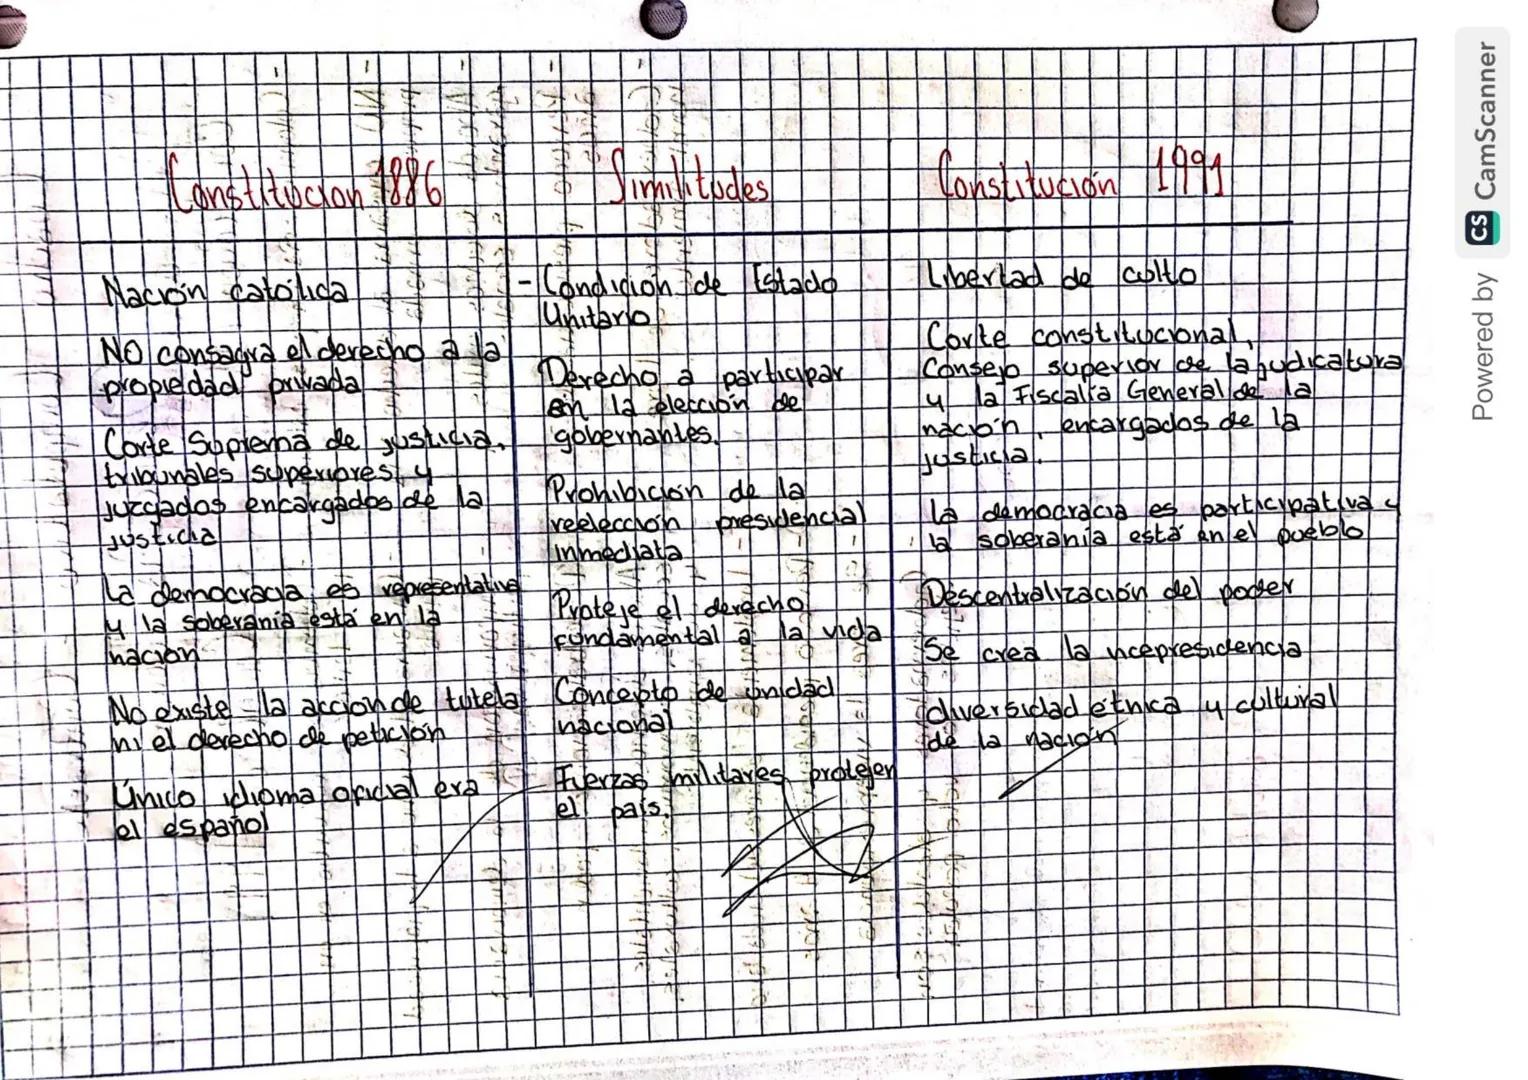 Constitucion 1886
Nación católica
NO consagra el derecho a la
propiedad privada
Corte Suprema de justicia,
tribunales superiores, y
juzgados encargados de la
justicia
La democracia es representativa
y la soberanía está en la
nación
No existe la acción de tutela
ni el derecho de petición
Único idioma oficial era
el español
Similitudes
- Condición de Estado
Unitario
Derecho a participar
en la elección de
gobernantes.
Prohibición de la
reelección presidencial
inmediata
Proteje el derecho
fundamental a la vida
Concepto de unidad
nacional
Fuerzas militares protejen
el país.
Constitución 1991
Libertad de culto
Corte constitucional,
Consejo superior de la judicatura
y la Fiscalía General de la
nación, encargados de la
justicia.
la democracia es participativa y
la soberanía está en el pueblo
Descentralización del poder
Se crea la vicepresidencia
diversidad étnica y cultural
de la nación
Powered by CS CamScanner